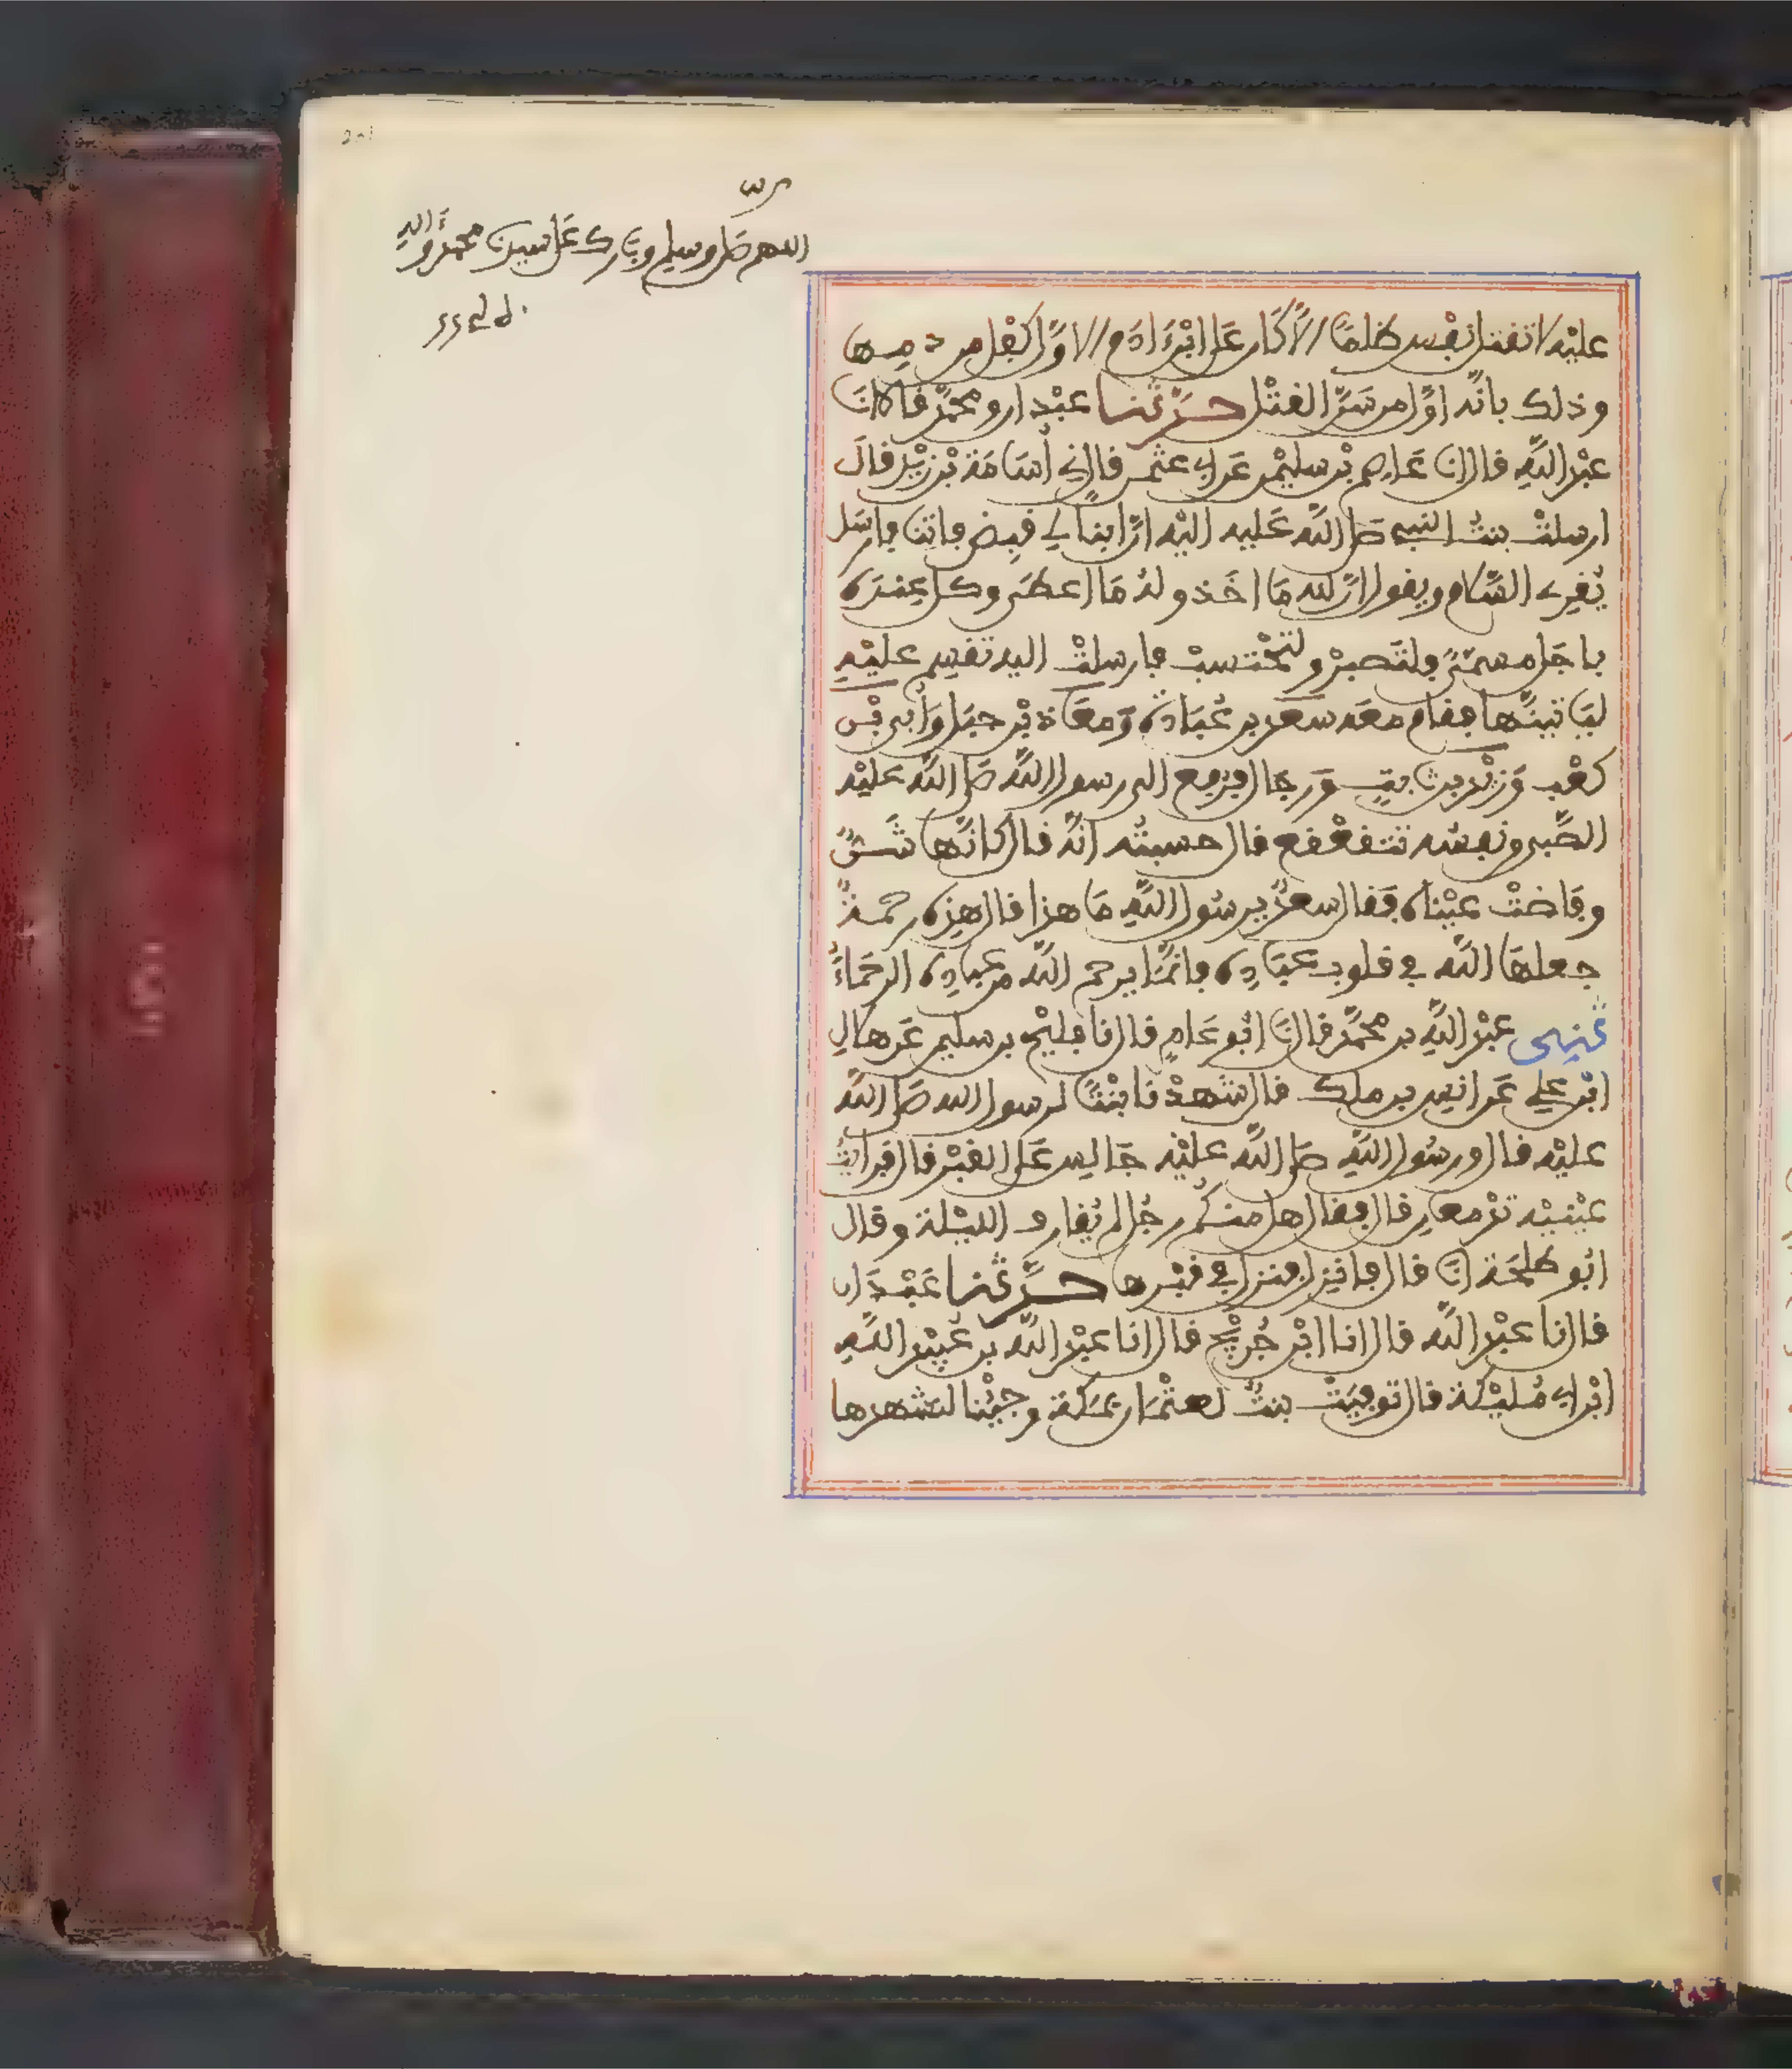 اللهم صل وسلم وبارك على سيدنا محمد وءاله
عليه لا تقتل نفس ظلما الا كان على ابن ءادم الاول كفل من دمها
وذلك بانه اول من سن القتل حدثنا عبدان ومحمد قالا انا
عبد الله قال انا عاصم بن سليمن عن ابي عثمن قال ني أسامة بن زيد قال
ارسلت بنت النبي صلى الله عليه اليه ان ابنا لي قبض فاتنا فارسل
يقرئ السلام ويقول ان لله ما اخذ وله ما اعطى وكل عنده
باجل مسمى فلتصبر ولتحتسب فارسلت اليه تقسم عليه
لياتينها فقام معه سعد بن عبادة ومعاذ بن جبل وأبي بن
كعب وزيد بن ثابت ورجال فرفع الى رسول الله صلى الله عليه
الصبي ونفسه تتقعقع قال حسبته انه قال كانها شن
وفاضت عيناه فقال سعد يرسول الله ما هذا قال هذه رحمة
جعلها الله في قلوب عباده فانما يرحم الله من عباده الرحماء
ثنى عبد الله بن محمد قال نا ابو عامر قال نا فليح بن سليمن عن هلال
ابن علي عن انس بن ملك قال شهدنا بنتا لرسول الله صلى الله
عليه قال ورسول الله صلى الله عليه جالس على القبر قال فرايت
عينيه تدمعان قال فقال هل منكم رجل لم يقارف الليلة وقال
ابو طلحة انا قال فانزل فنزل في قبرها حدثنا عبدان
قال انا عبد الله قال انا ابن جريج قال انا عبد الله بن عبيد الله
ابن ابي مليكة قال توفيت بنت لعثمان بمكة وجئنا لنشهدها